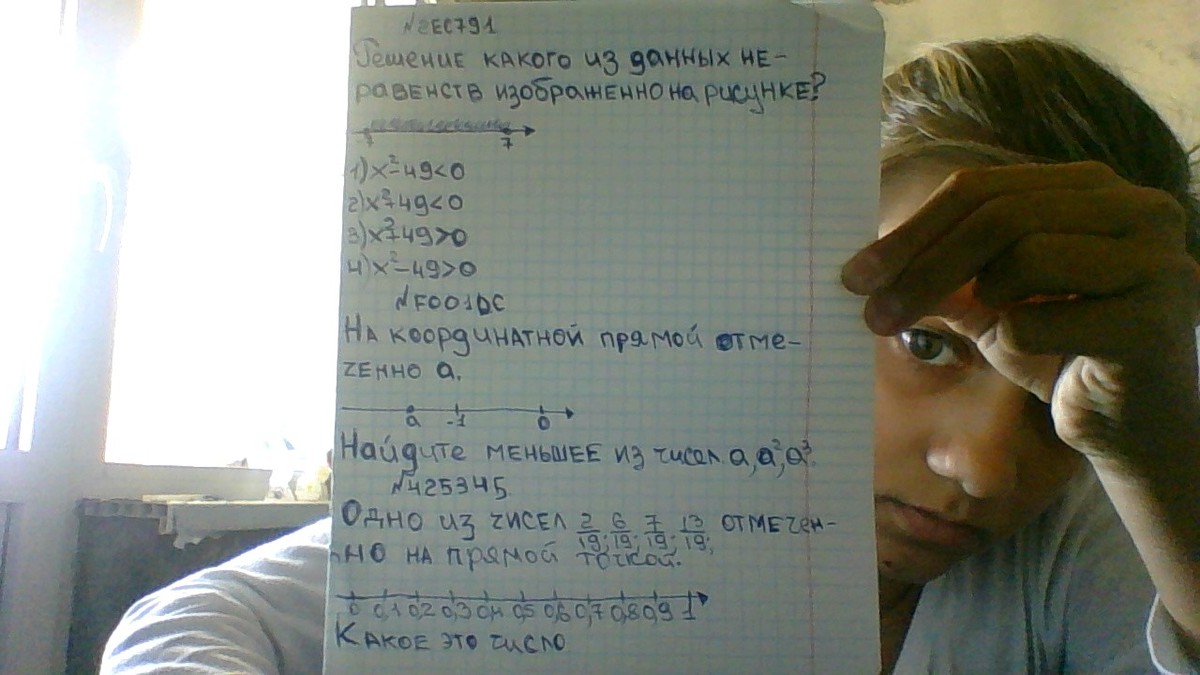 №2EC791
Решение какого из данных не-
равенств изображенно на рисунке?
-7 7
1) x²-49<0
2) x²+49<0
3) x²+49>0
4) x²-49>0
№F001DC
На координатной прямой отме-
ченно a.
a -1 0
Найдите меньшее из чисел a, a², a³.
№425345
Одно из чисел 2/19; 6/19; 7/19; 13/19; отмечен-
но на прямой точкой.
0 0,1 0,2 0,3 0,4 0,5 0,6 0,7 0,8 0,9 1
Какое это число